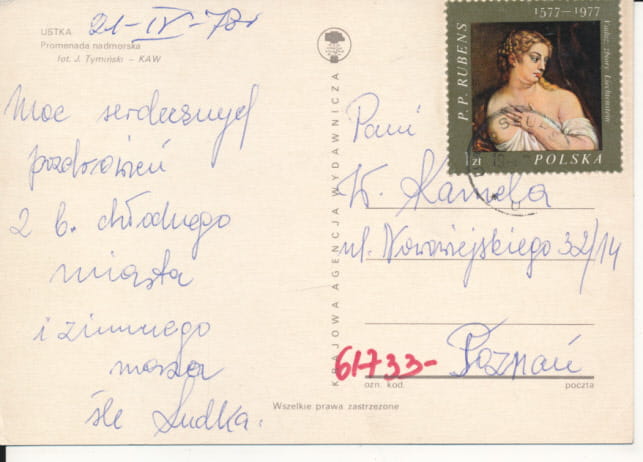 USTKA
21-IV-78r
Promenada nadmorska
fot. J. Tymiński – KAW
Moc serdecznych
pozdrowień
z b. chłodnego
miasta
i zimnego
morza
śle Ludka.
KRAJOWA AGENCJA WYDAWNICZA
1577–1977
P. P. RUBENS
zbiory Liechtenstein
1 zł
POLSKA
Pani
K. Kameba
ul. Nowowiejskiego 32/14
61733-
Poznań
ozn. kod.
poczta
Wszelkie prawa zastrzeżone